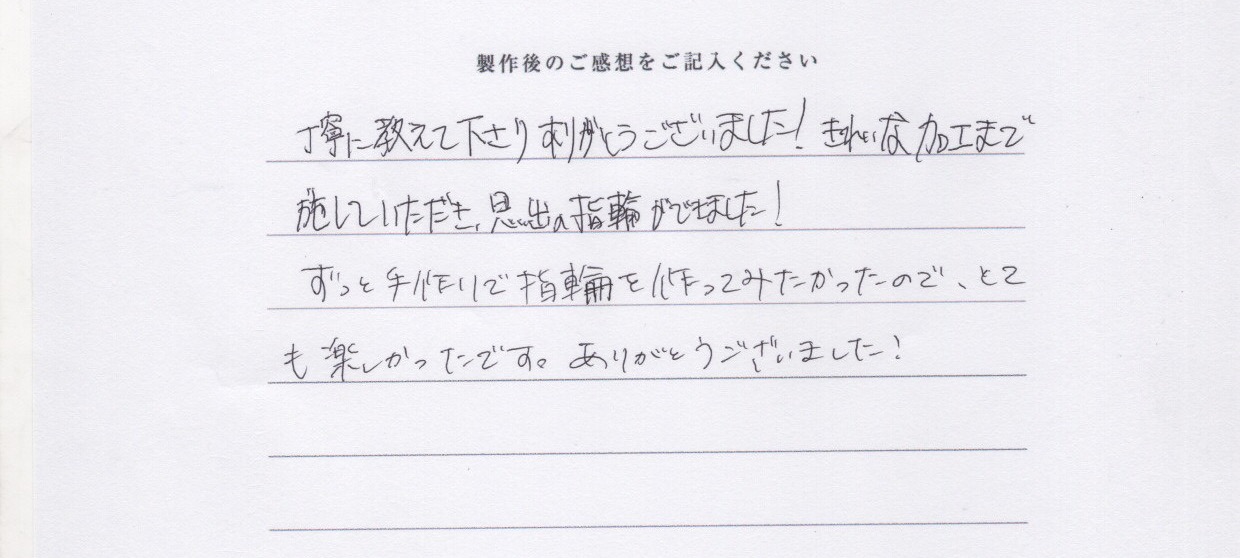 製作後のご感想をご記入ください
丁寧に教えて下さりありがとうございました！きれいな加工まで
施していただき、思出の指輪ができました！
ずっと手作りで指輪を作ってみたかったので、とて
も楽しかったです。ありがとうございました！